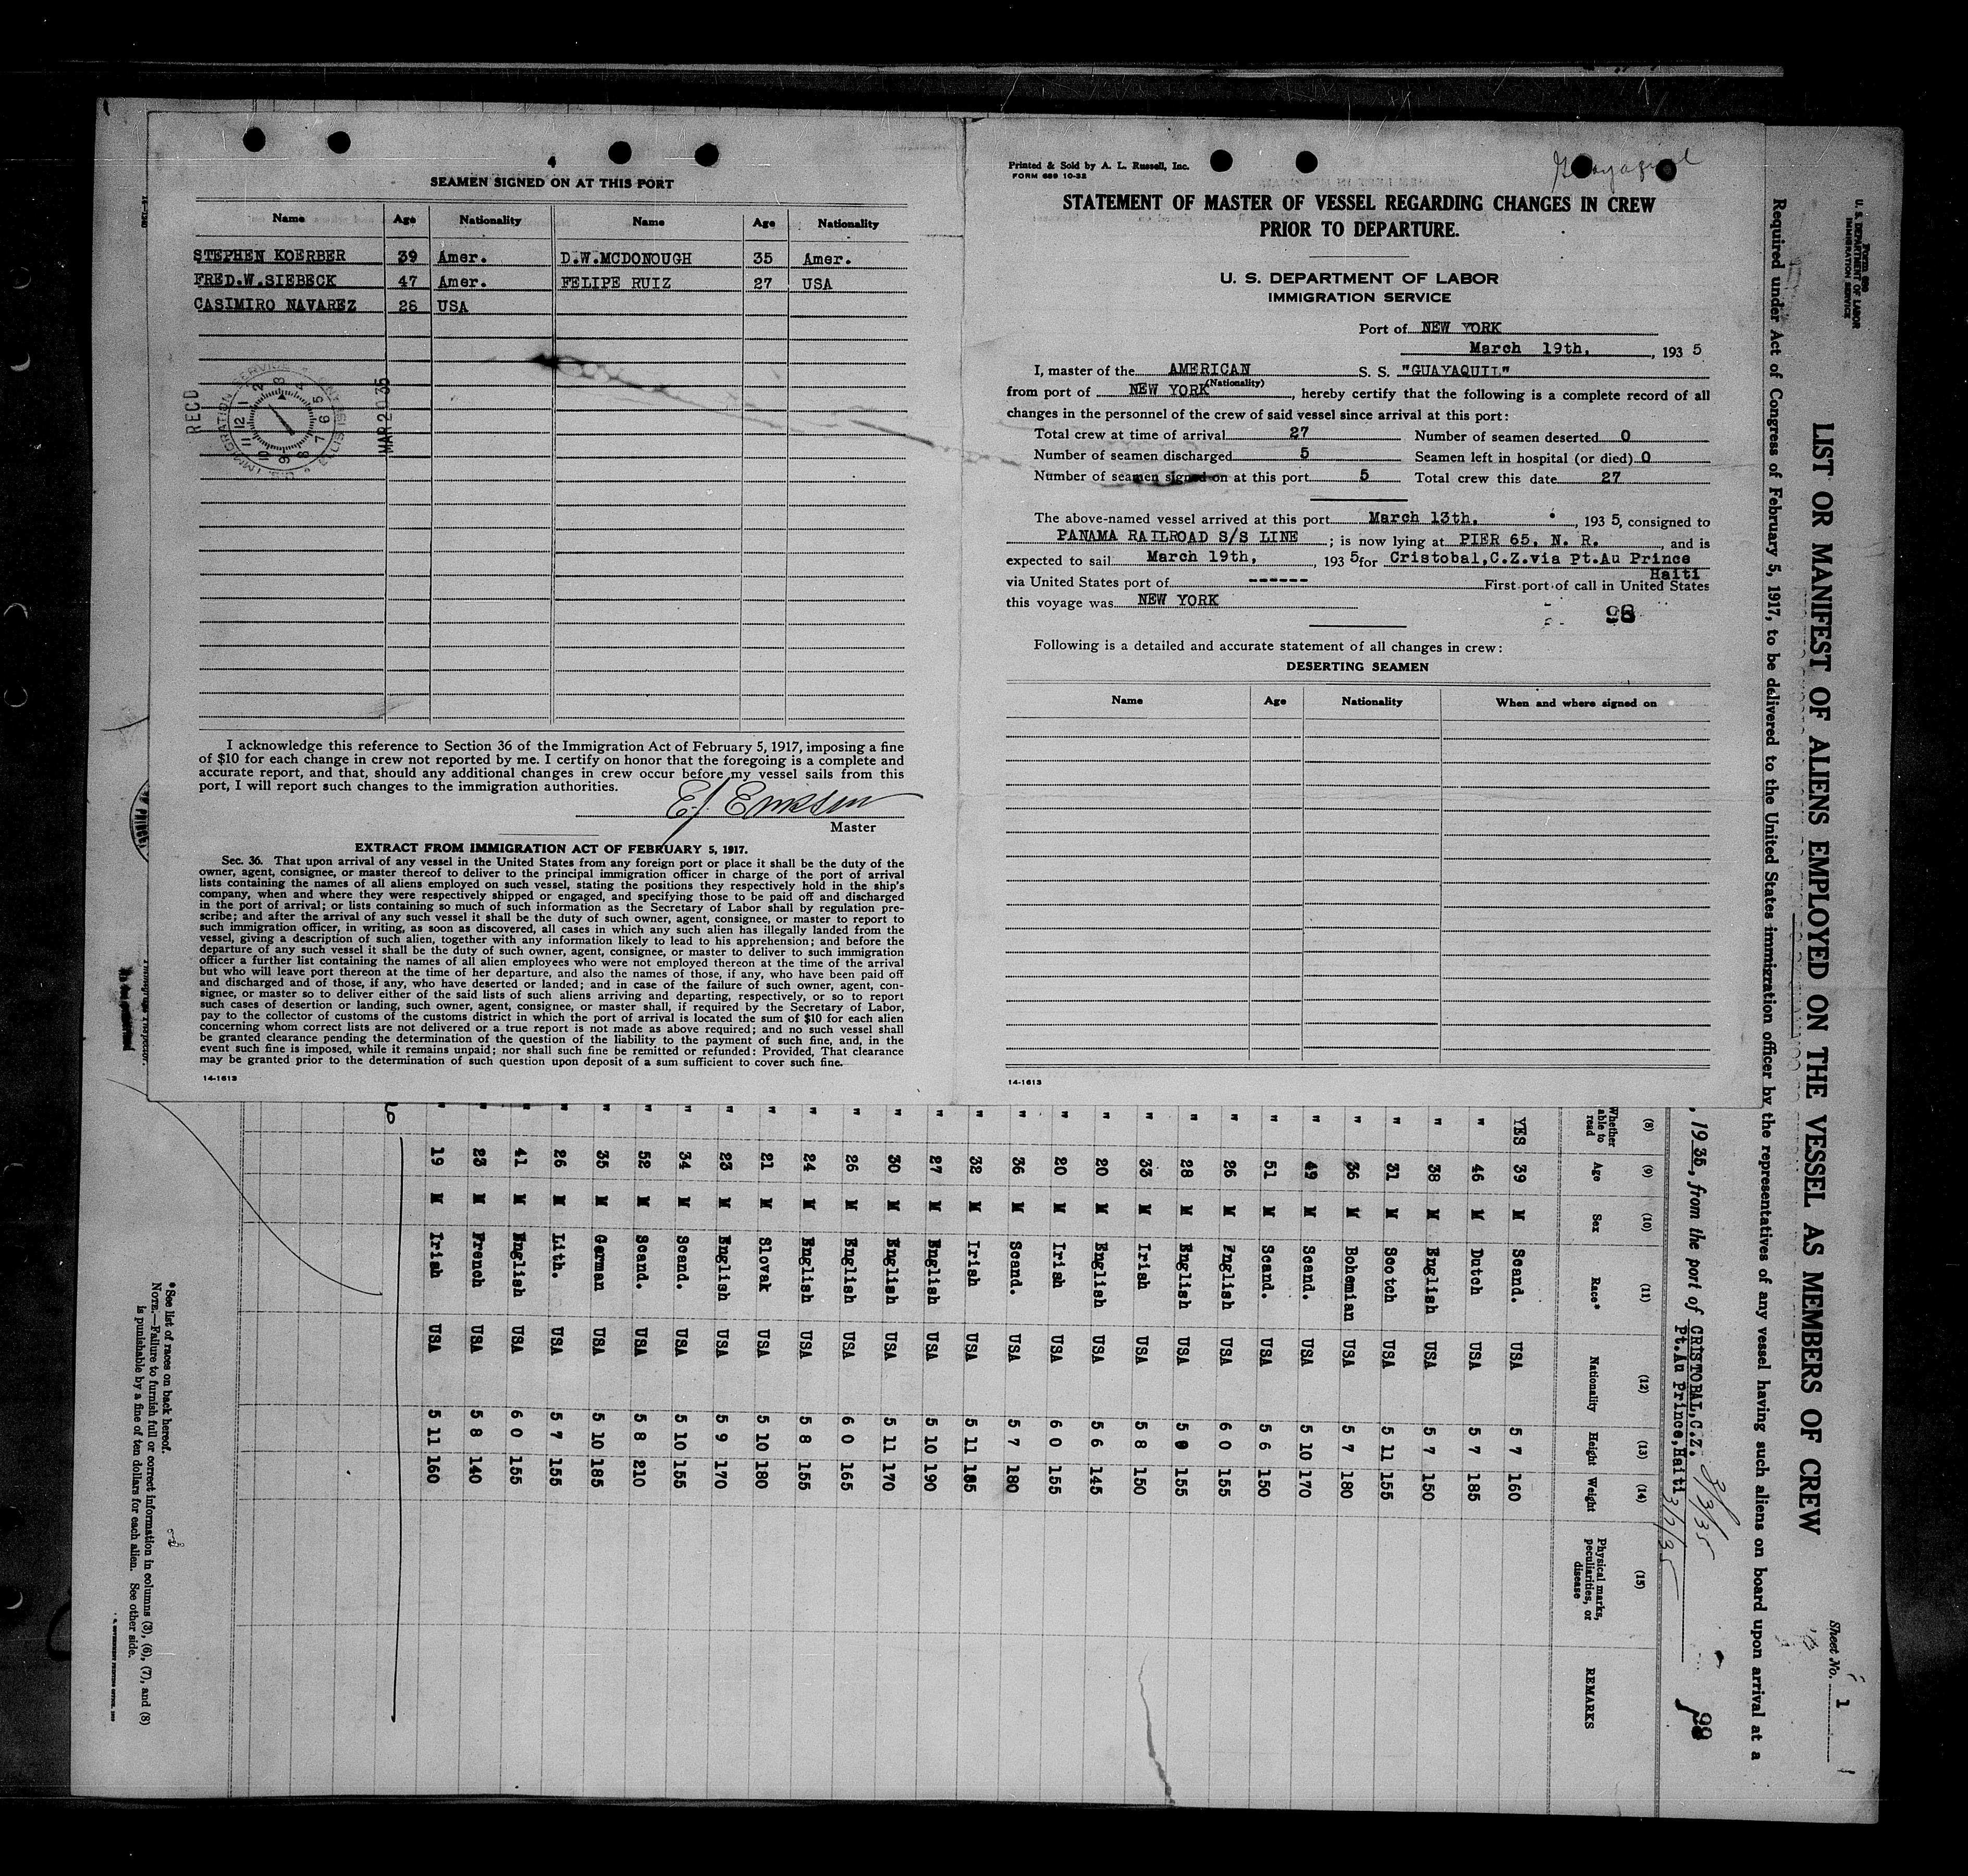 4
SEAMEN SIGNED ON AT THIS PORT
Name Age Nationality Name Age Nationality
STEPHEN KOERBER 39 Amer. D.W.MCDONOUGH 35 Amer.
FRED.W.SIEBECK 47 Amer. FELIPE RUIZ 27 USA
CASIMIRO NAVAREZ 28 USA
RECD
MAR 20 35
I acknowledge this reference to Section 36 of the Immigration Act of February 5, 1917, imposing a fine
of $10 for each change in crew not reported by me. I certify on honor that the foregoing is a complete and
accurate report, and that, should any additional changes in crew occur before my vessel sails from this
port, I will report such changes to the immigration authorities.
Master
EXTRACT FROM IMMIGRATION ACT OF FEBRUARY 5, 1917.
Sec. 36. That upon arrival of any vessel in the United States from any foreign port or place it shall be the duty of the
owner, agent, consignee, or master thereof to deliver to the principal immigration officer in charge of the port of arrival
lists containing the names of all aliens employed on such vessel, stating the positions they respectively hold in the ship's
company, when and where they were respectively shipped or engaged, and specifying those to be paid off and discharged
in the port of arrival; or lists containing so much of such information as the Secretary of Labor shall by regulation pre-
scribe; and after the arrival of any such vessel it shall be the duty of such owner, agent, consignee, or master to report to
such immigration officer, in writing, as soon as discovered, all cases in which any such alien has illegally landed from the
vessel, giving a description of such alien, together with any information likely to lead to his apprehension; and before the
departure of any such vessel it shall be the duty of such owner, agent, consignee, or master to deliver to such immigration
officer a further list containing the names of all alien employees who were not employed thereon at the time of the arrival
but who will leave port thereon at the time of her departure, and also the names of those, if any, who have been paid off
and discharged and of those, if any, who have deserted or landed; and in case of the failure of such owner, agent, con-
signee, or master so to deliver either of the said lists of such aliens arriving and departing, respectively, or so to report
such cases of desertion or landing, such owner, agent, consignee, or master shall, if required by the Secretary of Labor,
pay to the collector of customs of the customs district in which the port of arrival is located the sum of $10 for each alien
concerning whom correct lists are not delivered or a true report is not made as above required; and no such vessel shall
be granted clearance pending the determination of the question of the liability to the payment of such fine, and, in the
event such fine is imposed, while it remains unpaid; nor shall such fine be remitted or refunded: Provided, That clearance
may be granted prior to the determination of such question upon deposit of a sum sufficient to cover such fine.
14-1613
Printed & Sold by A. L. Russell, Inc.
FORM 689 10-32
Guayaquil
STATEMENT OF MASTER OF VESSEL REGARDING CHANGES IN CREW
PRIOR TO DEPARTURE.
U. S. DEPARTMENT OF LABOR
IMMIGRATION SERVICE
Port of NEW YORK
March 19th, , 193 5
I, master of the AMERICAN S. S. "GUAYAQUIL"
(Nationality)
from port of NEW YORK , hereby certify that the following is a complete record of all
changes in the personnel of the crew of said vessel since arrival at this port:
Total crew at time of arrival 27 Number of seamen deserted 0
Number of seamen discharged 5 Seamen left in hospital (or died) 0
Number of seamen signed on at this port 5 Total crew this date 27
The above-named vessel arrived at this port March 13th. , 193 5, consigned to
PANAMA RAILROAD S/S LINE ; is now lying at PIER 65. N. R. , and is
expected to sail March 19th, , 193 5 for Cristobal,C.Z.via Pt.Au Prince
Haiti
via United States port of ------ First port of call in United States
this voyage was NEW YORK
98
Following is a detailed and accurate statement of all changes in crew:
DESERTING SEAMEN
Name Age Nationality When and where signed on
14-1613
Form 680
U. S. DEPARTMENT OF LABOR
IMMIGRATION SERVICE
Sheet No. 1
LIST OR MANIFEST OF ALIENS EMPLOYED ON THE VESSEL AS MEMBERS OF CREW
Required under Act of Congress of February 5, 1917, to be delivered to the United States immigration officer by the representatives of any vessel having such aliens on board upon arrival at a
, 1935, from the port of CRISTOBAL,C.Z. 3/3/35
Pt.Au Prince,Haiti 3/7/35
98
(8) (9) (10) (11) (12) (13) (14) (15)
Whether able to read Age Sex Race* Nationality Height Weight Physical marks, peculiarities, or disease REMARKS
YES 39 M Scand. USA 5 7 160
" 46 M Dutch USA 5 7 185
" 38 M English USA 5 7 150
" 31 M Scotch USA 5 11 155
" 36 M Bohemian USA 5 7 180
" 49 M Scand. USA 5 10 170
" 51 M Scand. USA 5 6 150
" 26 M English USA 6 0 155
" 28 M English USA 5 155
" 33 M Irish USA 5 8 150
" 20 M English USA 5 6 145
" 20 M Irish USA 6 0 155
" 36 M Scand. USA 5 7 180
" 32 M Irish USA 5 11 185
" 27 M English USA 5 10 190
" 30 M English USA 5 11 170
" 26 M English USA 6 0 165
" 24 M English USA 5 8 155
" 21 M Slovak USA 5 10 180
" 23 M English USA 5 9 170
" 34 M Scand. USA 5 10 155
" 52 M Scand. USA 5 8 210
" 35 M German USA 5 10 185
" 26 M Lith. USA 5 7 155
" 41 M English USA 6 0 155
" 23 M French USA 5 8 140
" 19 M Irish USA 5 11 160
*See list of races on back hereof.
NOTE.—Failure to furnish full or correct information in columns (3), (6), (7), and (8)
is punishable by a fine of ten dollars for each alien. See other side.